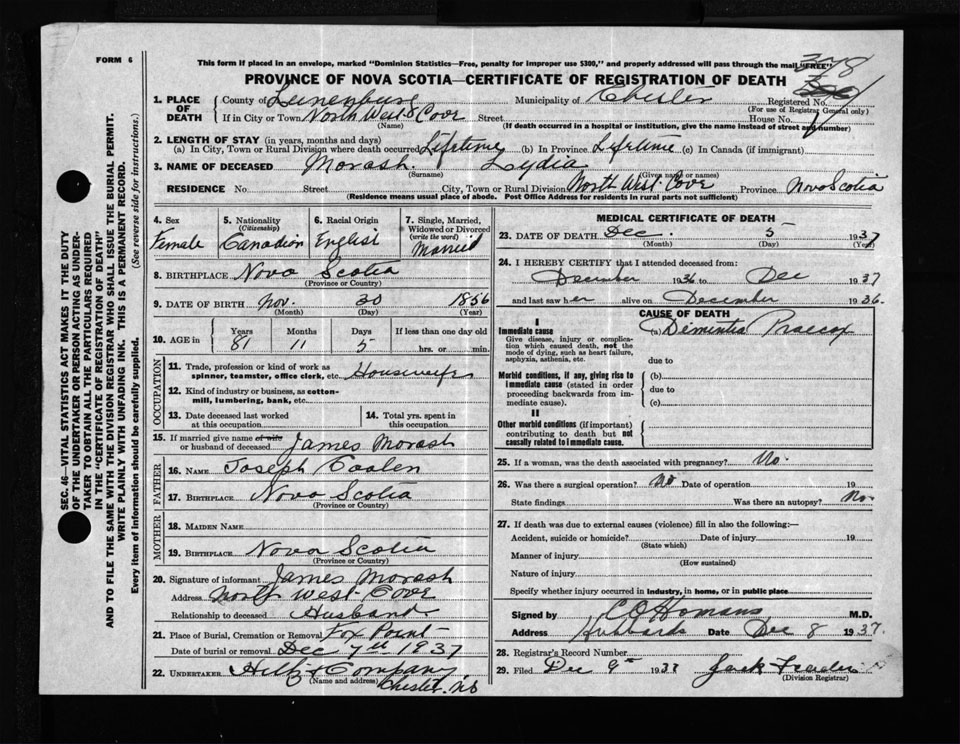 FORM 6
This form if placed in an envelope, marked "Dominion Statistics—Free, penalty for improper use $300," and properly addressed will pass through the mail "FREE"
PROVINCE OF NOVA SCOTIA—CERTIFICATE OF REGISTRATION OF DEATH
1. PLACE OF DEATH
County of Lunenburg Municipality of Chester Registered No.
(For use of Registrar General only)
If in City or Town North West Cove Street House No.
(Name) (If death occurred in a hospital or institution, give the name instead of street and number)
2. LENGTH OF STAY (in years, months and days)
(a) In City, Town or Rural Division where death occurred Lifetime (b) In Province Lifetime (c) In Canada (if immigrant)
3. NAME OF DECEASED Morash Lydia
(Surname) (Given name or names)
RESIDENCE No. Street City, Town or Rural Division North West Cove Province Nova Scotia
(Residence means usual place of abode. Post Office Address for residents in rural parts not sufficient)
4. Sex
Female
5. Nationality
(Citizenship)
Canadian
6. Racial Origin
English
7. Single, Married,
Widowed or Divorced
(write the word)
Married
8. BIRTHPLACE Nova Scotia
(Province or Country)
9. DATE OF BIRTH Nov. 30 1856
(Month) (Day) (Year)
10. AGE in
Years Months Days If less than one day old
81 11 5 hrs. or min.
OCCUPATION
11. Trade, profession or kind of work as
spinner, teamster, office clerk, etc. Housewife
12. Kind of industry or business, as cotton-
mill, lumbering, bank, etc.
13. Date deceased last worked
at this occupation
14. Total yrs. spent in
this occupation
15. If married give name of wife
or husband of deceased James Morash
FATHER
16. NAME Joseph Coolen
17. BIRTHPLACE Nova Scotia
(Province or Country)
MOTHER
18. MAIDEN NAME
19. BIRTHPLACE Nova Scotia
(Province or Country)
20. Signature of informant James Morash
Address North West Cove
Relationship to deceased Husband
21. Place of Burial, Cremation or Removal Fox Point
Date of burial or removal Dec 7th 1937
22. UNDERTAKER Hiltz & Company
(Name and address) Chester, NS
MEDICAL CERTIFICATE OF DEATH
23. DATE OF DEATH Dec. 5 1937
(Month) (Day) (Year)
24. I HEREBY CERTIFY that I attended deceased from:
December 1936 to Dec 1937
and last saw her alive on December 1936.
CAUSE OF DEATH
I
Immediate cause
(a) Dementia Praecox
Give disease, injury or complica-
tion which caused death, not the
mode of dying, such as heart failure,
asphyxia, asthenia, etc.
due to
Morbid conditions, if any, giving rise to
immediate cause (stated in order
proceeding backwards from im-
mediate cause).
(b)
due to
(c)
II
Other morbid conditions (if important)
contributing to death but not
causally related to immediate cause.
25. If a woman, was the death associated with pregnancy? No.
26. Was there a surgical operation? No Date of operation 19
State findings Was there an autopsy? No.
27. If death was due to external causes (violence) fill in also the following:—
Accident, suicide or homicide? Date of injury 19
(State which)
Manner of injury
(How sustained)
Nature of injury
Specify whether injury occurred in industry, in home, or in public place
Signed by C O Homans M.D.
Address Hubbards Date Dec 8 1937.
28. Registrar's Record Number
29. Filed Dec 9th 1937 Jack
(Division Registrar)
SEC. 46—VITAL STATISTICS ACT MAKES IT THE DUTY
OF THE UNDERTAKER OR PERSON ACTING AS UNDER-
TAKER TO OBTAIN ALL THE PARTICULARS REQUIRED
IN THE "CERTIFICATE OF REGISTRATION OF DEATH"
AND TO FILE THE SAME WITH THE DIVISION REGISTRAR WHO SHALL ISSUE THE BURIAL PERMIT.
WRITE PLAINLY WITH UNFADING INK. THIS IS A PERMANENT RECORD.
Every item of information should be carefully supplied. (See reverse side for instructions.)